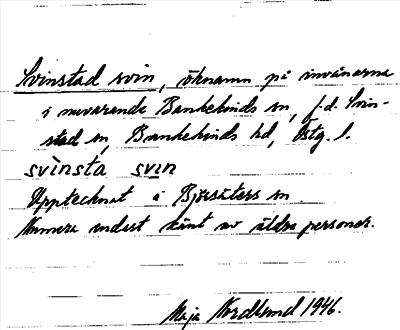 Svinstad svin, öknamn på invånarna
i nuvarande Bankekinds sn, f.d. Svin-
stad sn, Bankekinds hd, Östg. l.
svìnsta svın
Upptecknat i Björsäters sn.
Numera endast känt av äldre personer.
Maja Nordlund 1946.